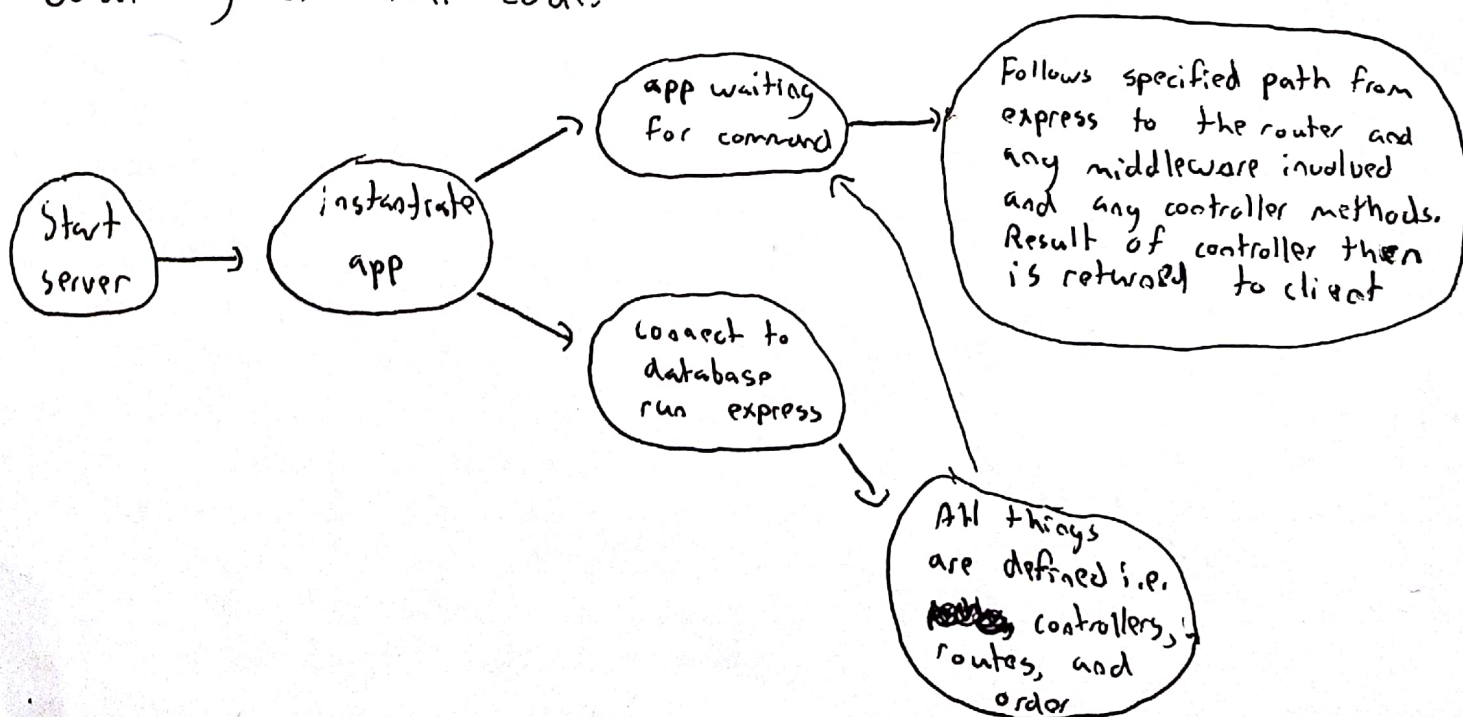 Start
server
instantiate
app
app waiting
for command
Follows specified path from
express to the router and
any middleware involved
and any controller methods.
Result of controller then
is returned to client
connect to
database
run express
All things
are defined i.e.
controllers,
routes, and
order